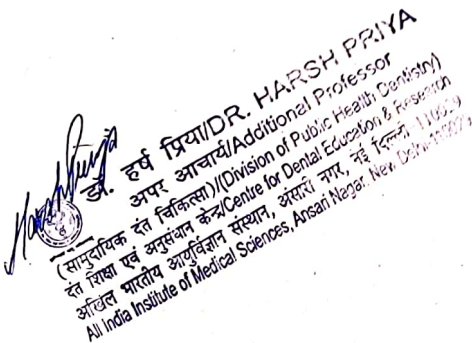 डॉ. हर्ष प्रिया/DR. HARSH PRIYA
अपर आचार्य/Additional Professor
(सामुदायिक दंत चिकित्सा)/(Division of Public Health Dentistry)
दंत शिक्षा एवं अनुसंधान केन्द्र/Centre for Dental Education & Research
अखिल भारतीय आयुर्विज्ञान संस्थान, अंसारी नगर, नई दिल्ली-110029
All India Institute of Medical Sciences, Ansari Nagar, New Delhi-110029